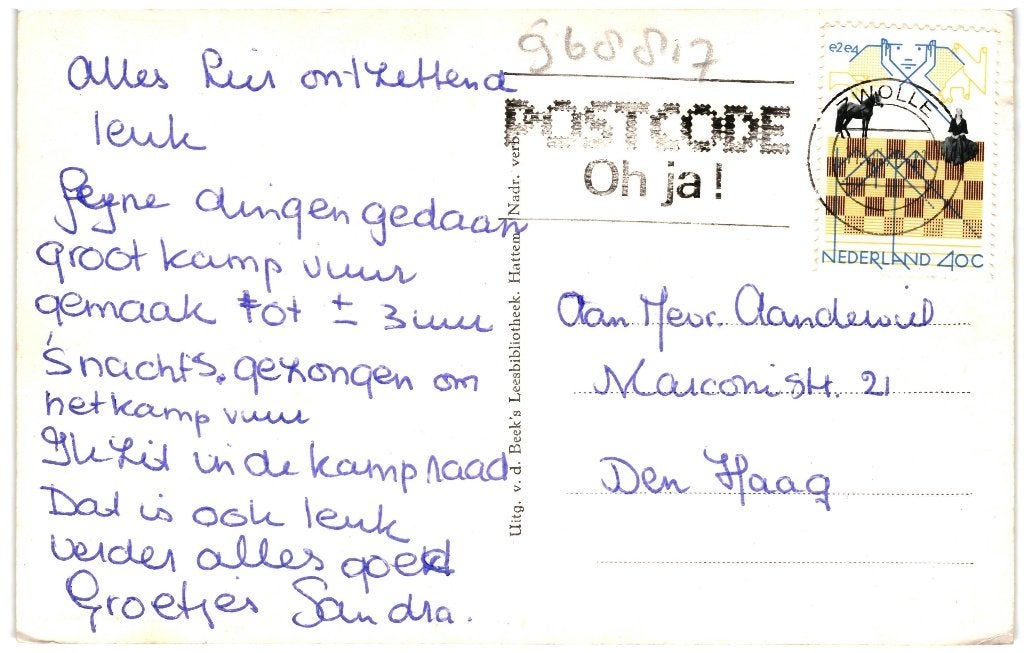 Alles hier ontzettend
leuk
Feyne dingen gedaan
groot kamp vuur
gemaak tot ± 3 uur
'snachts. gezongen om
het kamp vuur
Ik zit in de kampraad
Dat is ook leuk
verder alles goed
Groetjes Sandra.
Uitg. v. d. Beek's Leesbibliotheek, Hattem. Nadr. verb.
968817
POSTCODE
Oh ja!
ZWOLLE
e2e4
NEDERLAND 40c
Aan Mevr. Aandewiel
Marconistr. 21
Den Haag